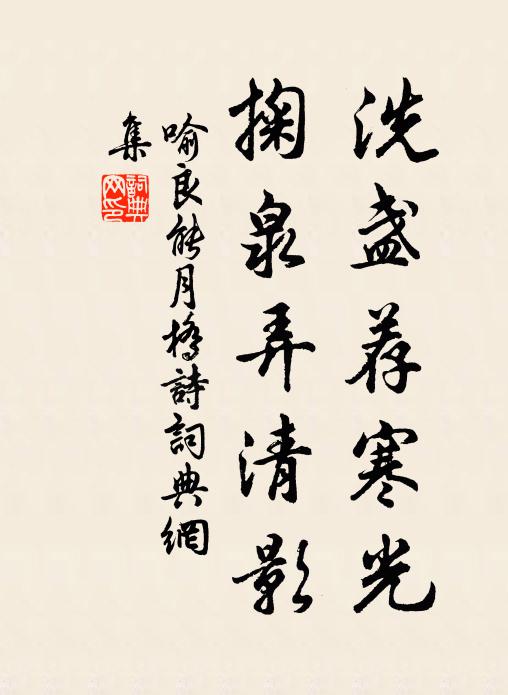 洗盏荐寒光
掬泉弄清影
喻良能月橋詩詞典網
集
詞典網印